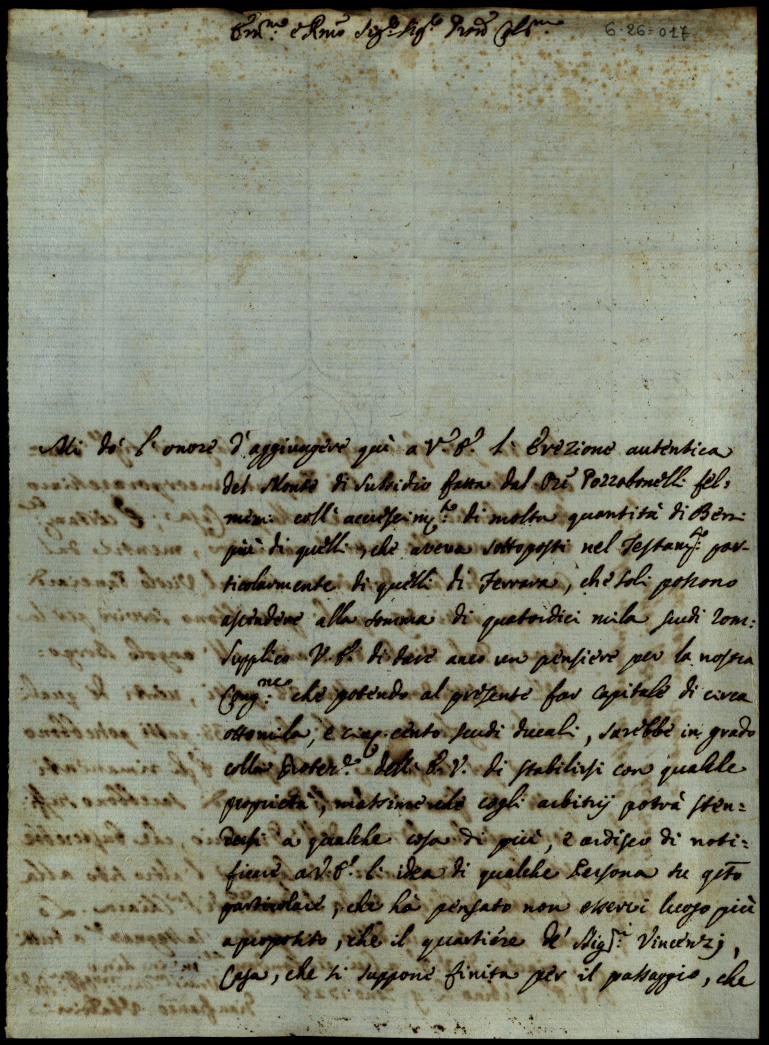 Em.mo e Rmo Sig.r Sig.r Pron Col.mo
6-26=017
Mi dò l'onore d'aggiugnere quì a V.ª E.ª l'Erezione autentica
del Monte di Subsidio fatta dal Pre Pozzobonelli fel:
mem: coll'accrescim.to di molta quantità di Beni
più di quelli, che aveva sottoposti nel Testam.to par-
ticolarmente di quelli di Ferrara, che soli possono
ascendere alla somma di quatordici mila scudi rom:
Supplico V. E. di dare anco un pensiere per la nostra
Cong.ne che potendo al presente far Capitale di circa
ottomila, e cinq. cento scudi ducali, sarebbe in grado
colla Protez.e dell' E. V. di stabilirsi con qualche
proprietà, massime che cogli arbitrij potrà sten-
dersi a qualche cosa di più, e ardisco di noti-
ficare a V. E. l'idea di qualche Persona su qsto
particolare, che hà pensato non esservi luogo più
a proposito, che il quartiére de' Sig.ri Vincenzj,
Casa, che si suppone finita per il passaggio, che